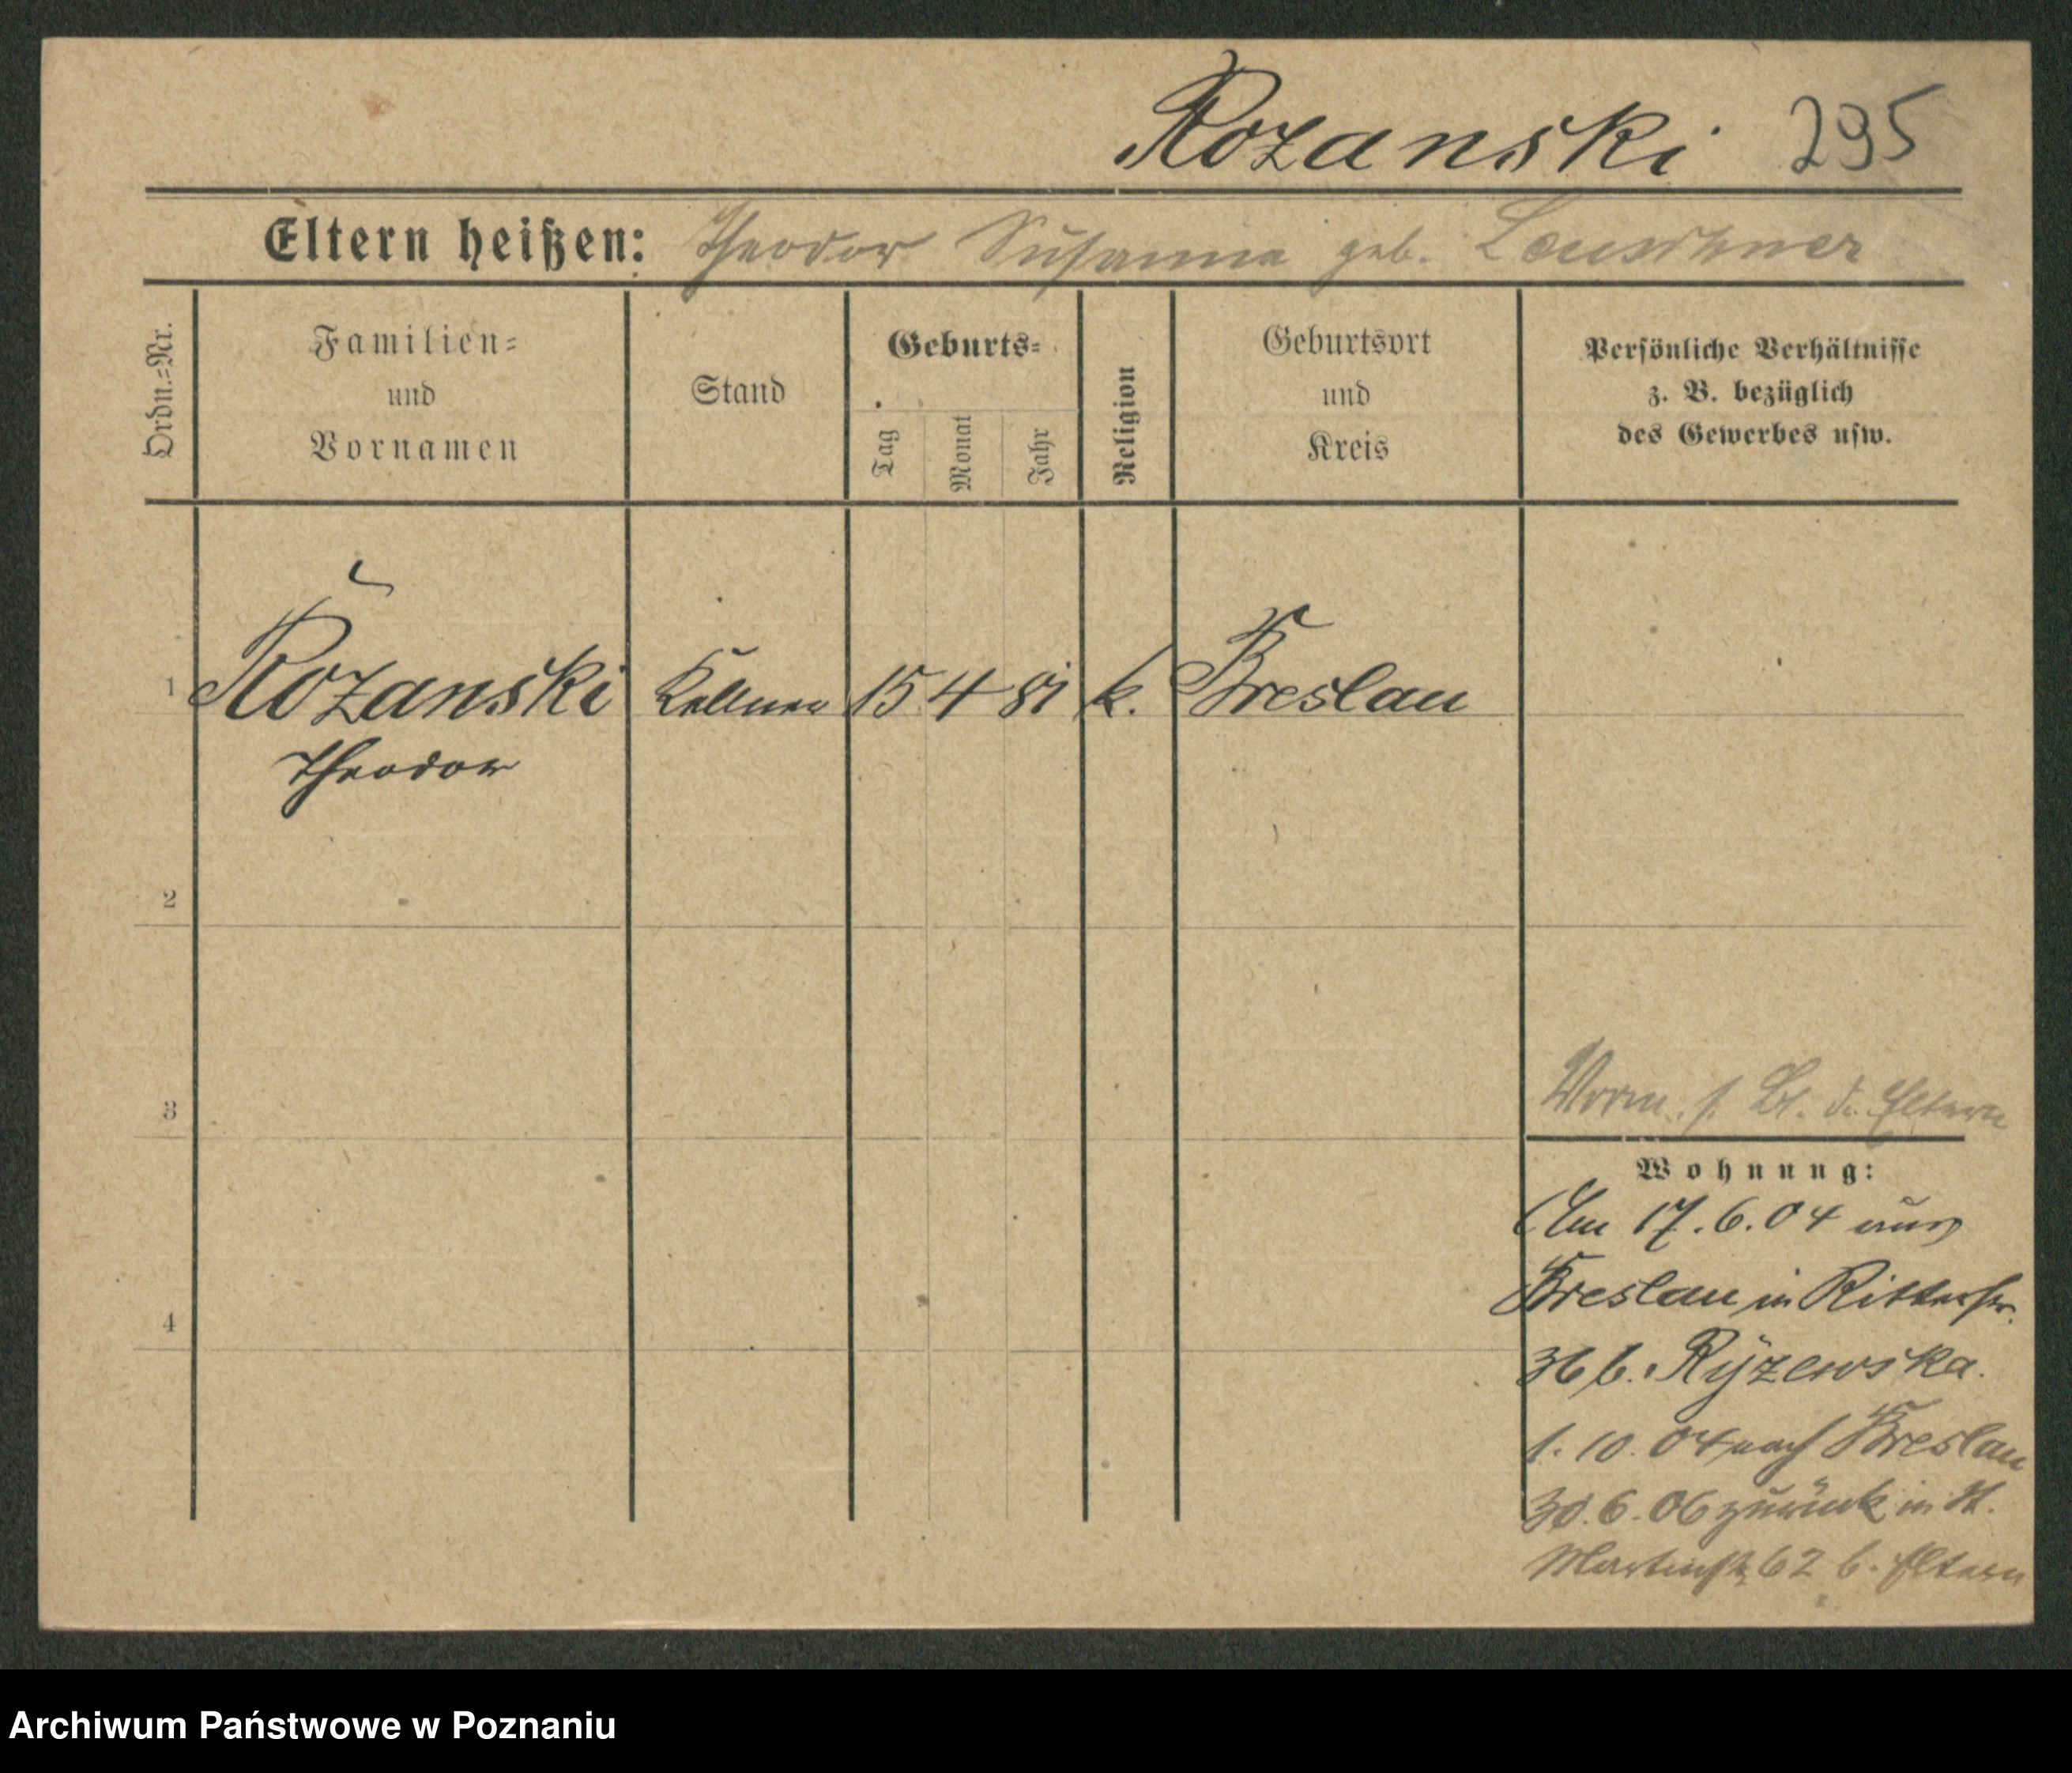 Rozanski 295
Eltern heißen: Theodor Susanna geb. Leuschner
Ordn.=Nr.
Familien=
und
Vornamen
Stand
Geburts=
Tag
Monat
Jahr
Religion
Geburtsort
und
Kreis
Persönliche Verhältnisse
z. B. bezüglich
des Gewerbes usw.
1 Rożanski Kellner 15 4 81 k. Breslau
Theodor
2
3
d. Eltern
Wohnung:
Am 17.6.04 aus
Breslau in Ritterstr.
36 b. Ryzewska.
1.10.04 nach Breslau
30.6.06 zurück in St.
Martinstr 62 b. Eltern
4
Archiwum Państwowe w Poznaniu